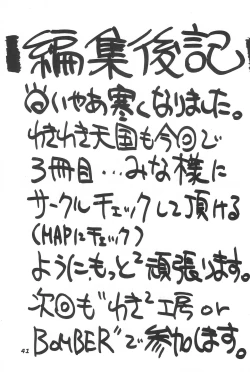 編集後記
いやあ寒くなりました。
わきわき天国も今回で
3冊目…みな様に
サークルチェックして頂ける
(MAPにチェック)
ように、もっと²頑張ります。
次回も"わき²工房 or
BOMBER"で参加します。
41